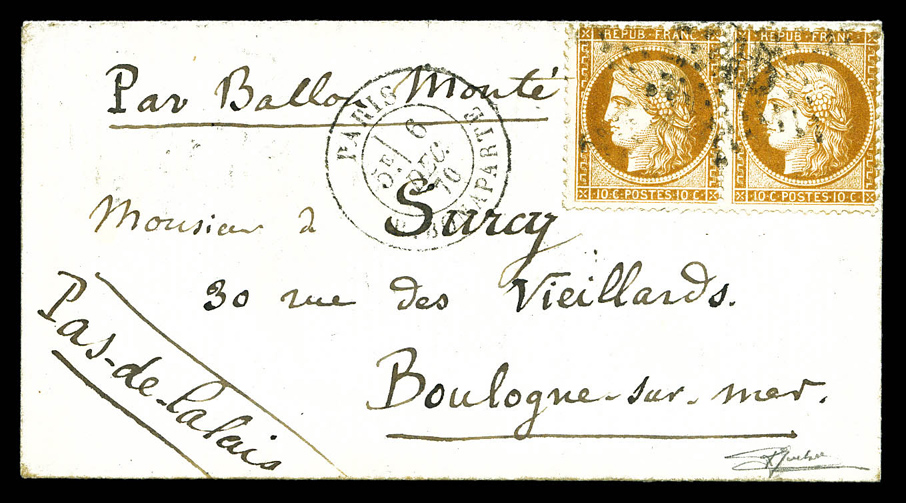 Par Ballon Monté
REPUB FRANC
10 C POSTES 10 C
REPUB FRANC
10 C POSTES 10 C
PARIS
6
5E
DEC.
70
BONAPARTE
Monsieur de Surcy
30 rue des Vieillards.
Boulogne-sur-mer.
Pas-de-Calais